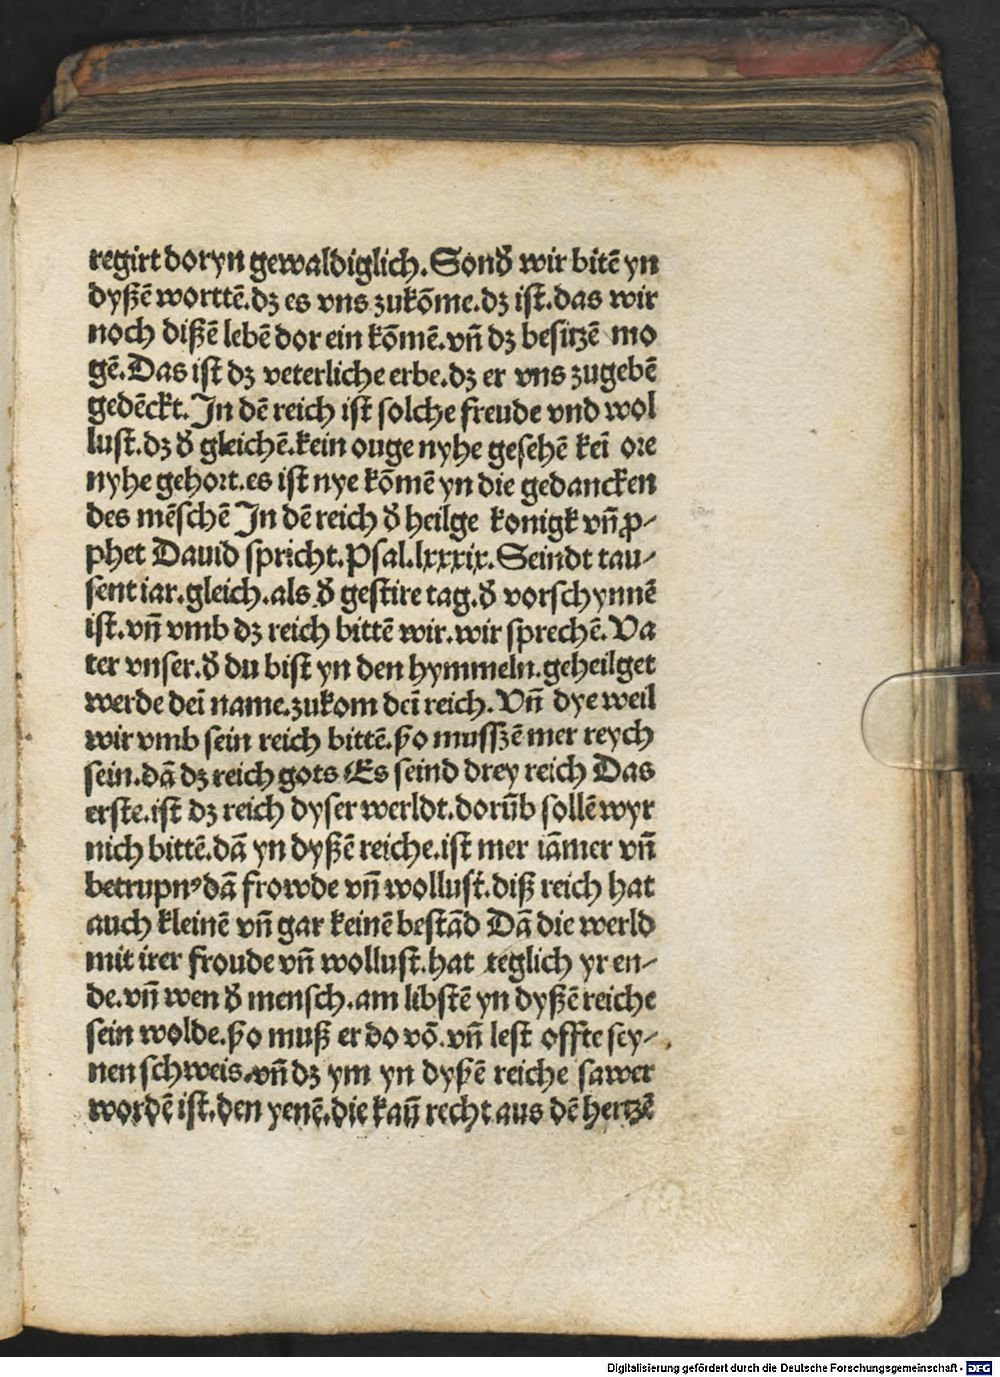 regirt doryn gewaldiglich. Sonđ wir bitē yn
dyßē worttē.dz es vns zukōme.dz ist.das wir
noch dißē lebē dor ein kōmē.vñ dz besitzē mo
gē.Das ist dz veterliche erbe.dz er vns zugebē
gedēckt.Jn dē reich ist solche freude vnd wol
lust.dz đ gleichē.kein ouge nyhe gesehē kei ore
nyhe gehort.es ist nye kōmē yn die gedancken
des mēschē Jn dē reich đ heilge konigk vñ ꝓ⸗
phet Dauid spricht.Psal.lxxxix.Seindt tau⸗
sent iar.gleich.als đ gestire tag.đ vorschynnē
ist.vñ vmb dz reich bittē wir.wir sprechē.Va
ter vnser.đ du bist yn den hymmeln.geheilget
werde dei name.zukom dei reich.Vñ dye weil
wir vmb sein reich bittē.ßo musszē mer reych
sein.dā dz reich gots Es seind drey reich Das
erste.ist dz reich dyser werldt.dorūb sollē wyr
nich bittē.dā yn dyßē reiche.ist mer iāmer vñ
betrupnꝰ dā frowde vñ wollust.diß reich hat
auch kleinē vñ gar keinē bestād Dā die werld
mit irer froude vñ wollust.hat teglich yr en⸗
de.vñ wen đ mensch.am libstē yn dyßē reiche
sein wolde.ßo muß er do vō.vñ lest offte sey⸗
nen schweis.vñ dz ym yn dyßē reiche sawer
wordē ist.den yenē.die kaū recht aus dē hertzē
Digitalisierung gefördert durch die Deutsche Forschungsgemeinschaft - DFG